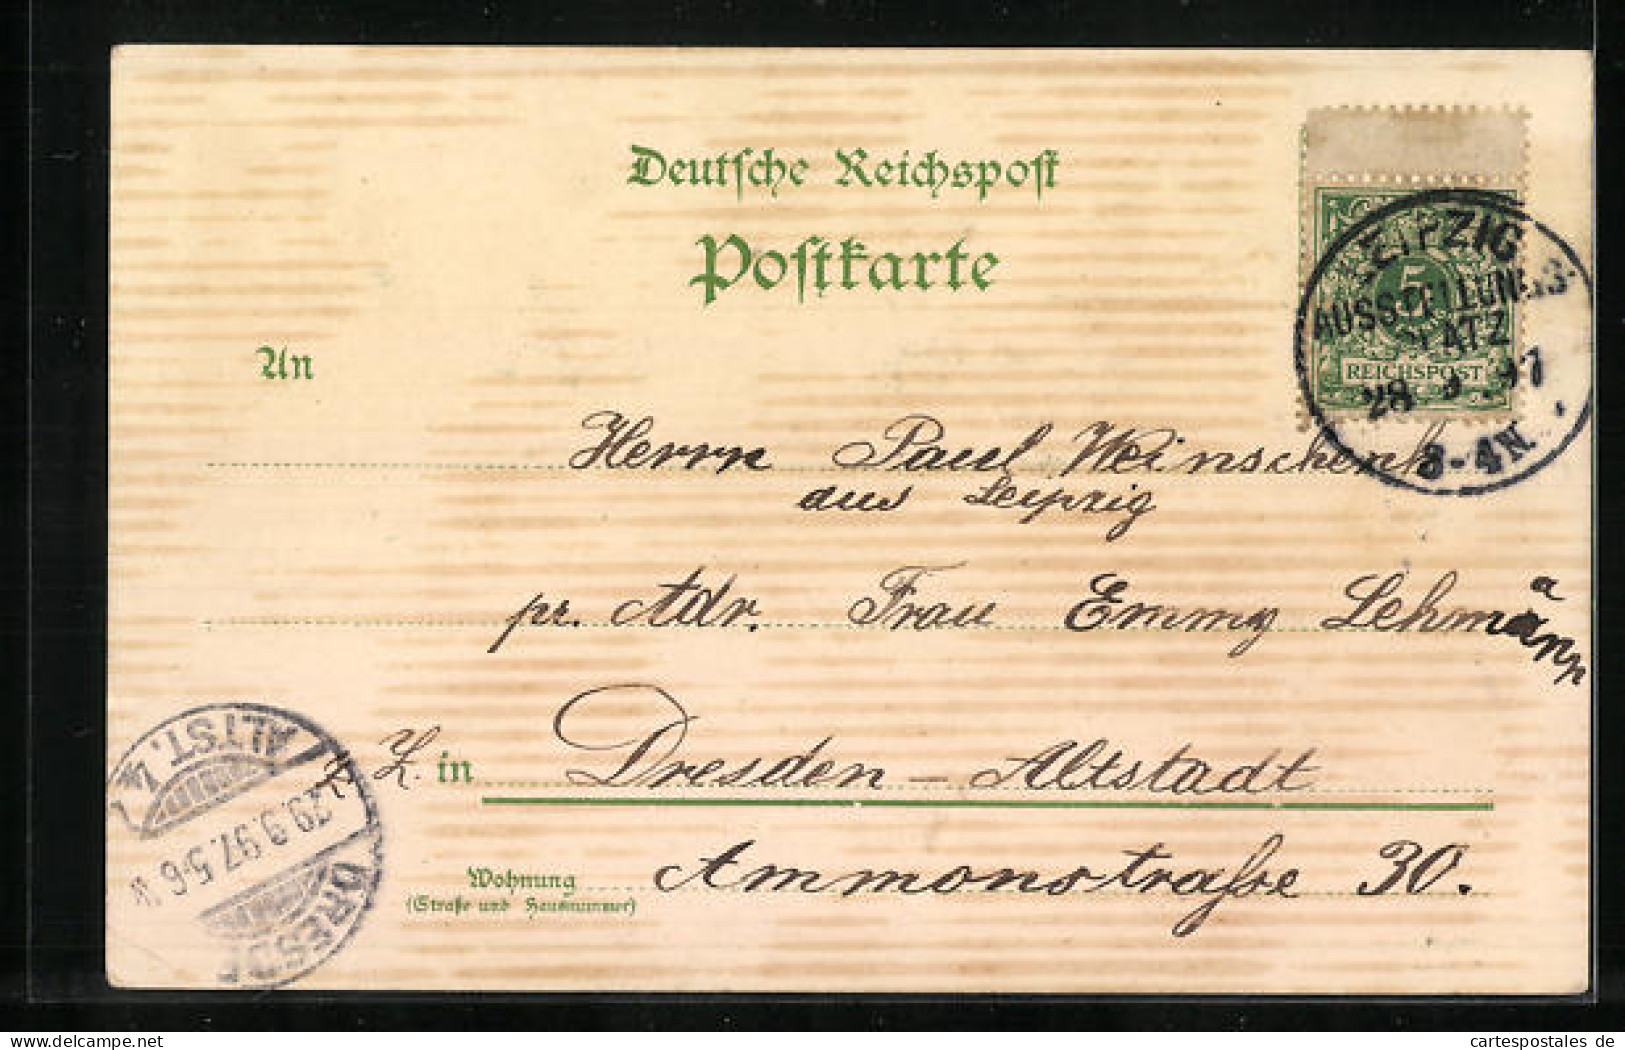 Deutsche Reichspost
Postkarte
5
REICHSPOST
LEIPZIG
AUSSTELLUNGS-
PLATZ
28 9 97
3-4N.
An
Herrn Paul Weinschenk
aus Leipzig
pr. Adr. Frau Emmy Lehmann
a
Z. in Dresden-Altstadt
Wohnung Ammonstraße 30.
(Straße und Hausnummer)
DRESDEN
29.9.97. 5-6 V.
ALTST. 4
cartespostales de